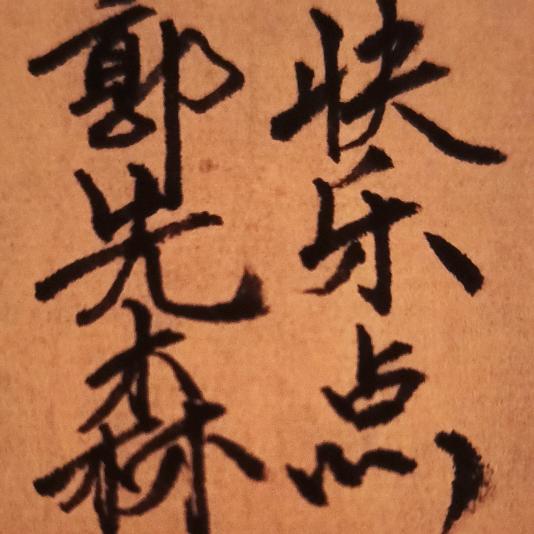 快乐点
郭先森